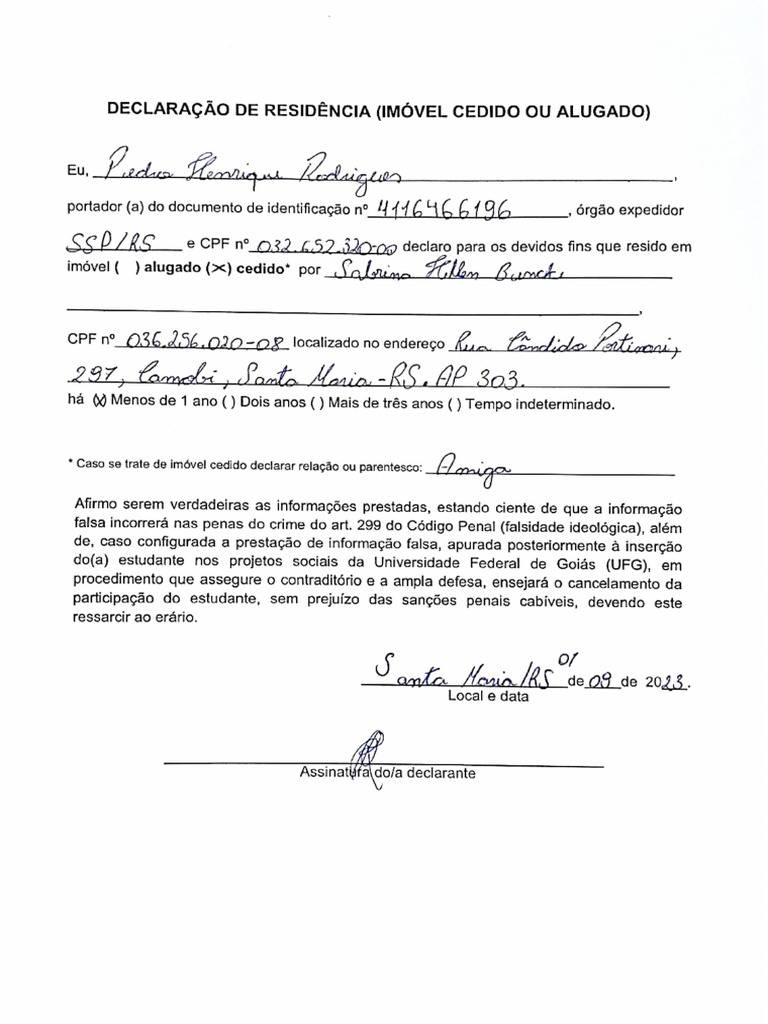 DECLARAÇÃO DE RESIDÊNCIA (IMÓVEL CEDIDO OU ALUGADO)
Eu, Pedro Henrique Rodrigues,
portador (a) do documento de identificação nº 4116466196, órgão expedidor
SSP/RS e CPF nº 032.652.320-00 declaro para os devidos fins que resido em
imóvel ( ) alugado (X) cedido* por Sabrina Hillen
,
CPF nº 036.256.020-08 localizado no endereço Rua Cândido Portinari,
297, Camobi, Santa Maria-RS. AP 303.
há (X) Menos de 1 ano ( ) Dois anos ( ) Mais de três anos ( ) Tempo indeterminado.
* Caso se trate de imóvel cedido declarar relação ou parentesco: Amiga
Afirmo serem verdadeiras as informações prestadas, estando ciente de que a informação
falsa incorrerá nas penas do crime do art. 299 do Código Penal (falsidade ideológica), além
de, caso configurada a prestação de informação falsa, apurada posteriormente à inserção
do(a) estudante nos projetos sociais da Universidade Federal de Goiás (UFG), em
procedimento que assegure o contraditório e a ampla defesa, ensejará o cancelamento da
participação do estudante, sem prejuízo das sanções penais cabíveis, devendo este
ressarcir ao erário.
Santa Maria/RS 01 de 09 de 2023.
Local e data
Assinatura do/a declarante